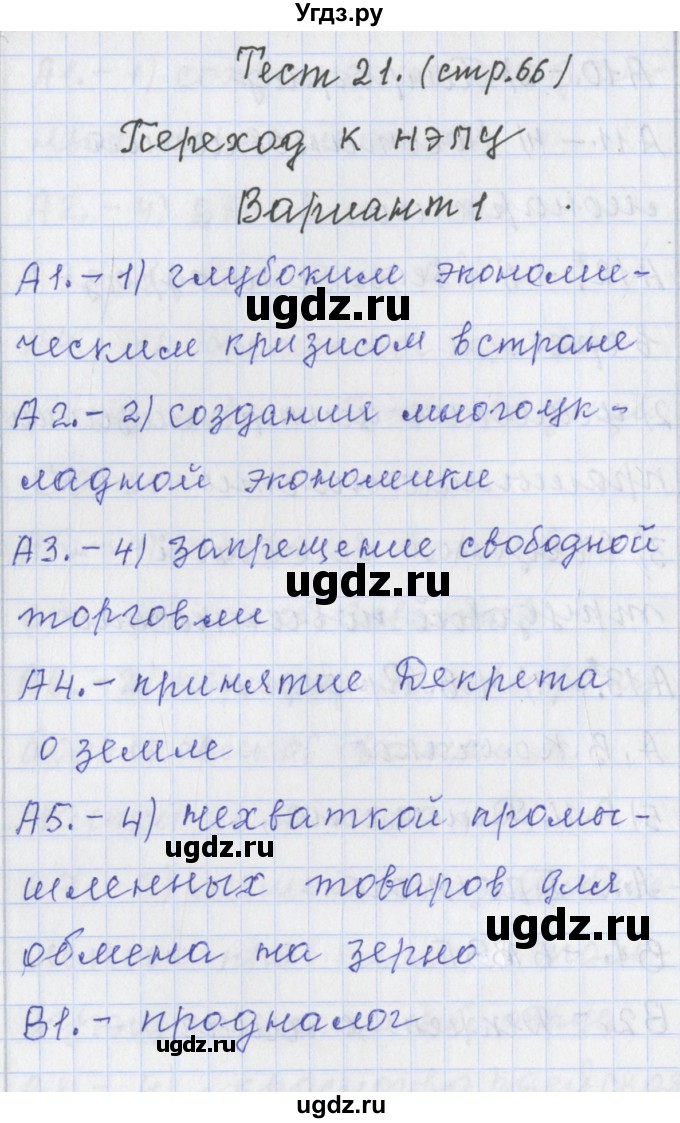 Угдз.ру
Тест 21. (стр.66)
Переход к НЭПу
Вариант 1
А1. - 1) глубоким экономи-
ugdz.ru
ческим кризисом в стране
А2. - 2) создании многоук-
ладной экономики
А3. - 4) запрещение свободной
ugdz.ru
торговли
А4. - принятие Декрета
о земле
А5. - 4) нехваткой промы-
ugdz.ru
шленных товаров для
ugdz.ru
обмена на зерно
В1. - продналог
ugdz.ru
ugdz.ru